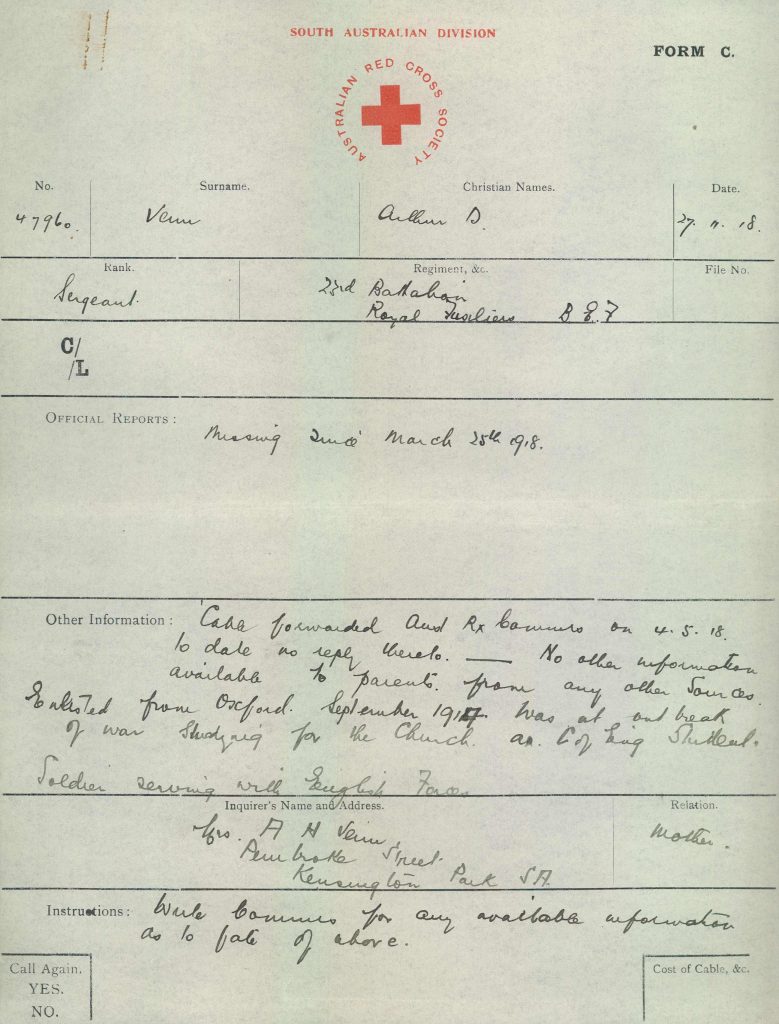 SOUTH AUSTRALIAN DIVISION
FORM C.
AUSTRALIAN RED CROSS SOCIETY
No. Surname. Christian Names. Date.
47960. Venn Arthur D. 27. 11. 18.
Rank. Regiment, &c. File No.
Sergeant. 23rd Battalion
Royal Fusiliers B E F
C/
/L
OFFICIAL REPORTS:
Missing since March 25th 1918.
Other Information: Cable forwarded Aust Rx Commrs on 4. 5. 18.
to date no reply thereto. — No other information
available to parents from any other sources.
Enlisted from Oxford. September 1914. Was at outbreak
of war studying for the Church. as C of Eng Student.
Soldier serving with English Forces
Inquirer's Name and Address. Relation.
Mrs. A H Venn Mother.
Pembroke Street
Kensington Park SA.
Instructions: Write Commrs for any available information
as to fate of above.
Call Again. Cost of Cable, &c.
YES.
NO.